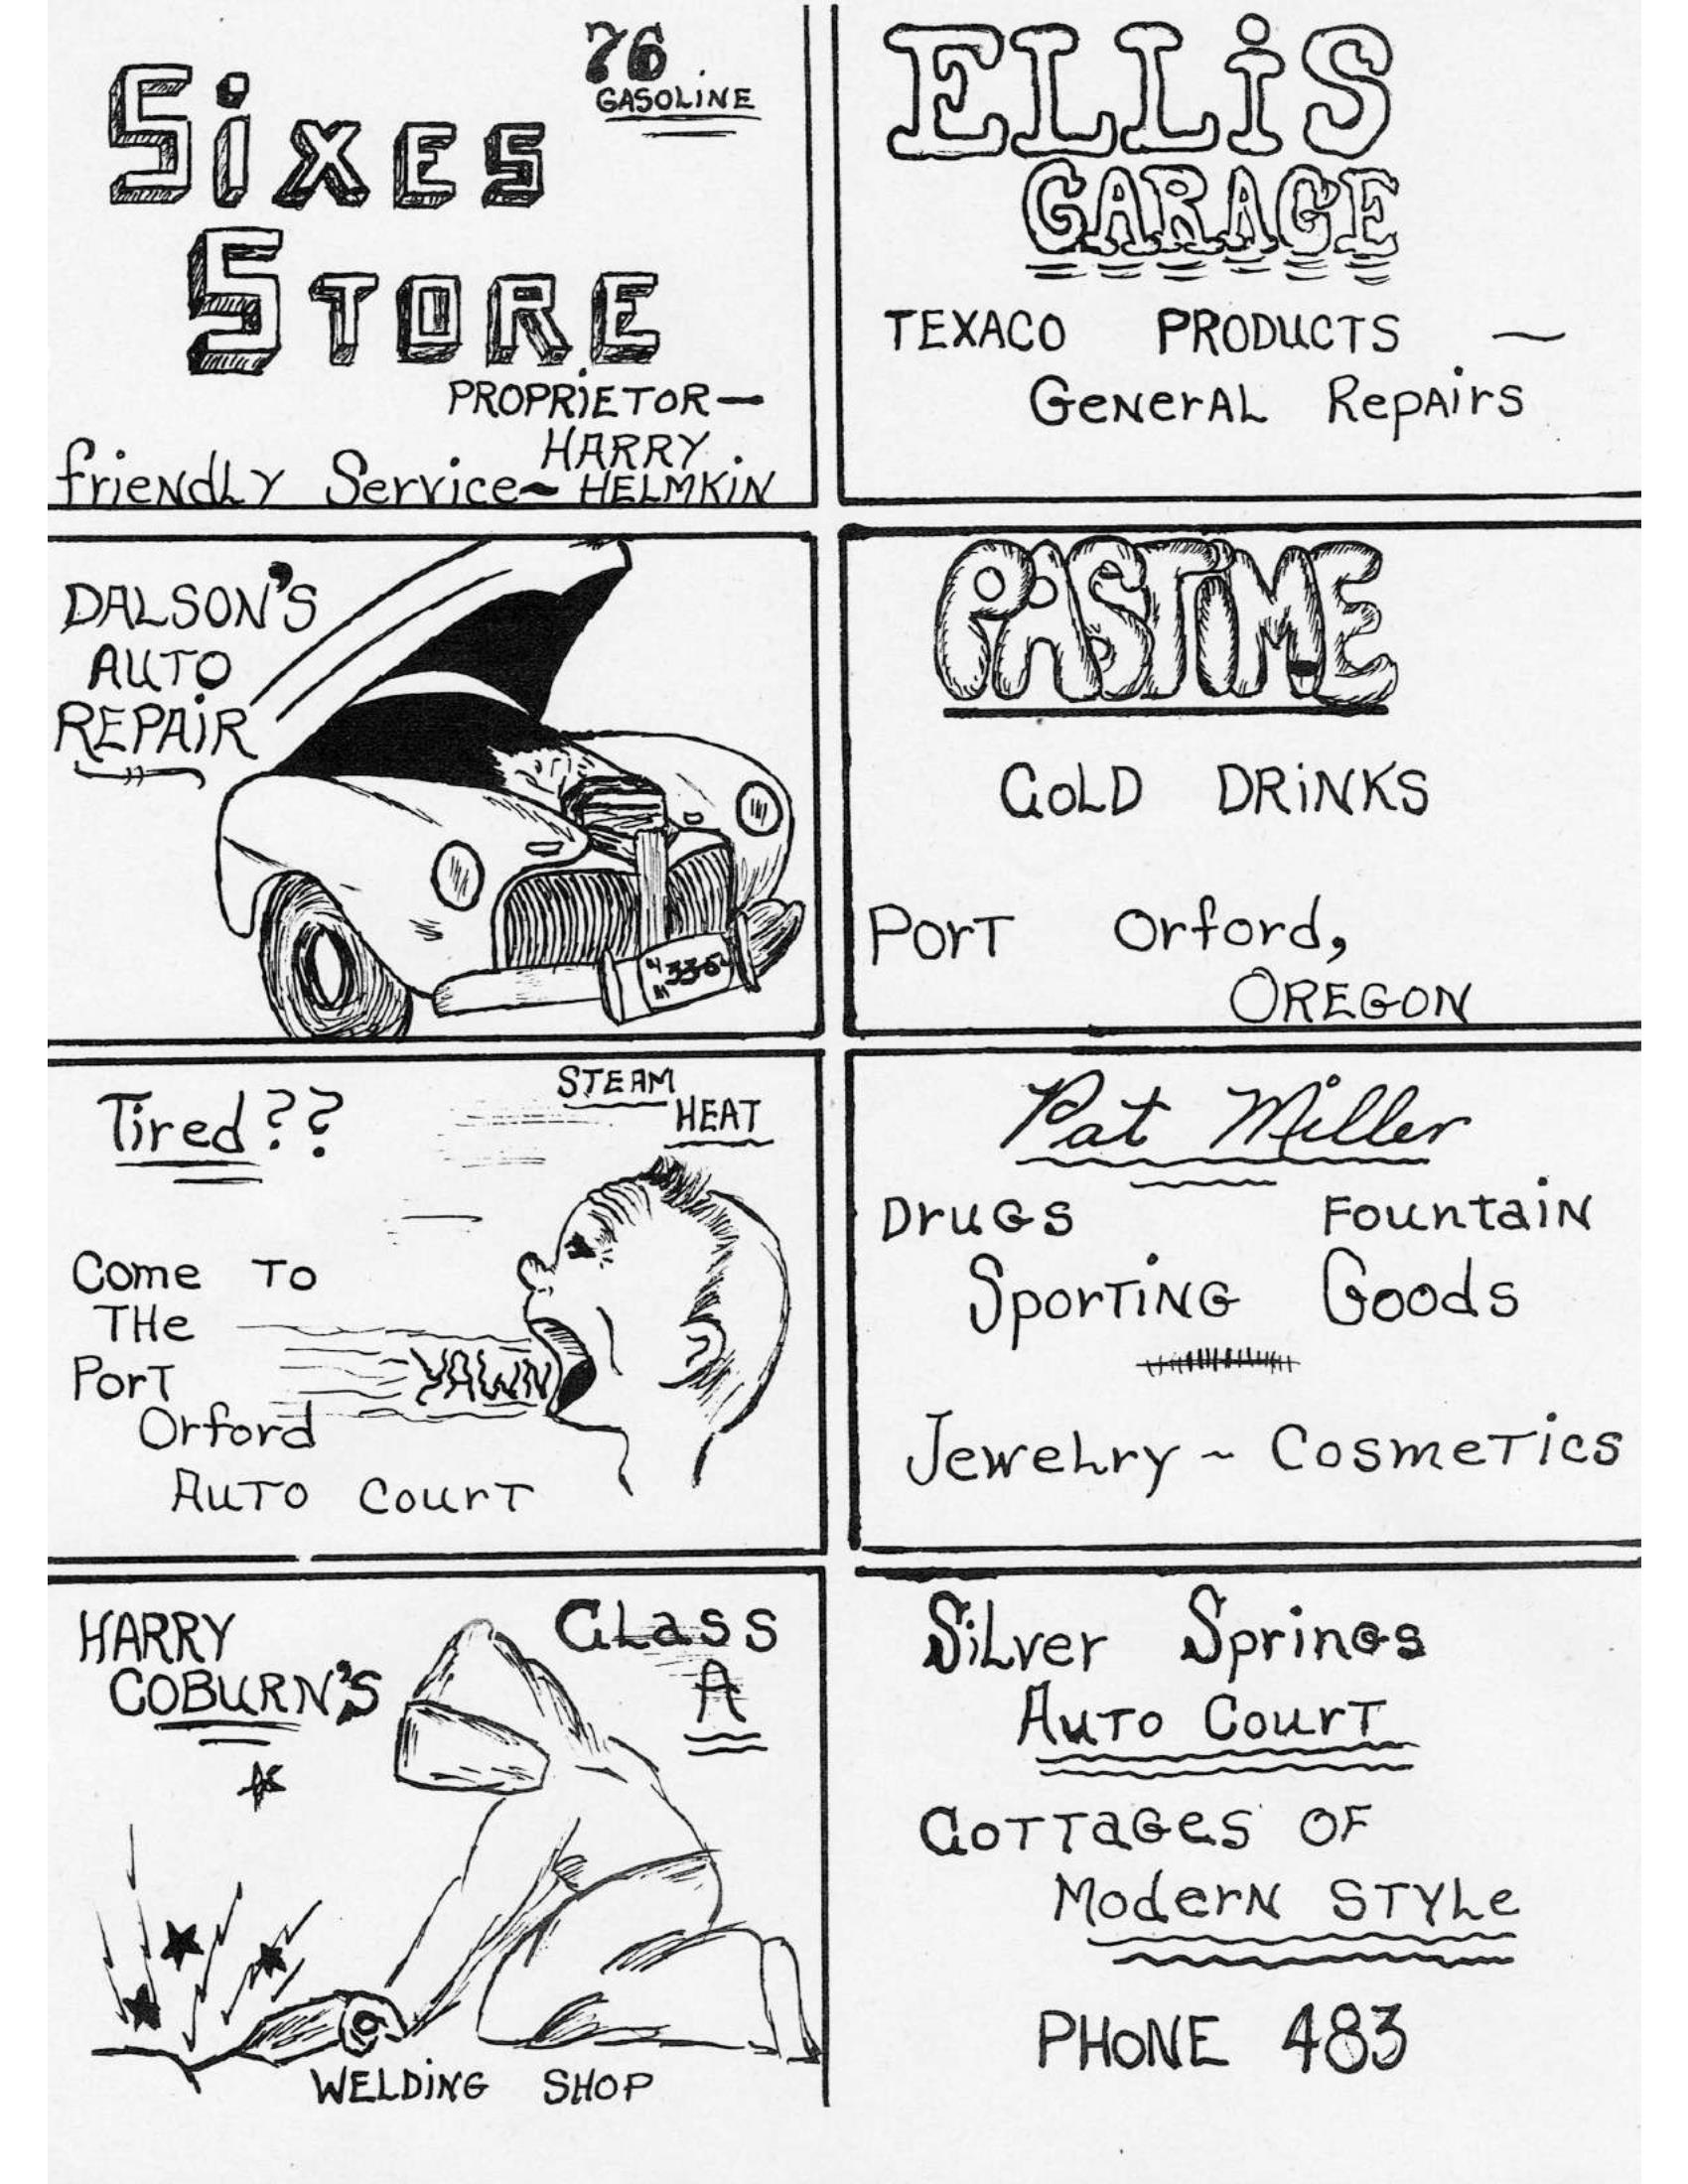 76
GASOLINE
SiXES
STORE
PROPRiETOR—
HARRY
friENdLY Service~ HELMKiN
ELLiS
GARAGE
TEXACO PRODUCTS ~
GeNerAL RepAirs
DALSON'S
AUTO
REPAiR
PASTiME
COLD DRiNKS
PorT Orford,
OREGON
Tired??
STEAM
HEAT
Come To
THe
PorT
Orford
AuTo CourT
YAWN
Pat Miller
DruGs FountaiN
SporTiNG Goods
JeweLry ~ CosmeTics
HARRY
COBURN'S
CLass
A
WELDiNG SHOP
SiLver SprinGs
AuTo CourT
CoTTaGes OF
ModerN STYLe
PHONE 483